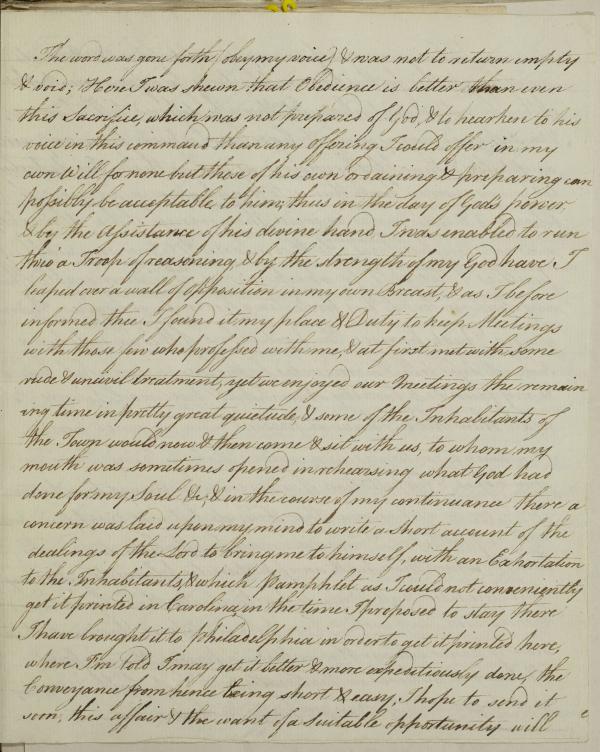 The word was gone forth (obey my voice) & was not to return empty
& void; Here I was shewn that Obedience is better than even
this Sacrifice, which was not prepared of God, & to hearken to his
voice in this command than any offering I could offer in my
own Will for none but those of his own ordaining & preparing can
possibly be acceptable to him; thus in the day of God's power
& by the Assistance of his divine hand I was enabled to run
thro a Troop of reasoning & by the strength of my God have I
leaped over a wall of opposition in my own Breast, & as I before
informed thee I found it my place & Duty to keep Meetings
with those few who professed with me, & at first met with some
rude & uncivil treatment, yet we enjoyed our Meetings the remain
ing time in pretty great quietude, & some of the Inhabitants of
the Town would now & then come & sit with us, to whom my
mouth was sometimes opened in rehearsing what God had
done for my Soul &c, & in the course of my continuance there a
concern was laid upon my mind to write a short account of the
dealings of the Lord to bring me to himself, with an Exhortation
to the Inhabitants, & which Pamphlet as I could not conveniently
get it printed in Carolina in the time I proposed to stay there
I have brought it to Philadelphia in order to get it printed here,
where I'm told I may get it better & more expeditiously done, the
Conveyance from hence being short & easy, I hope to send it
soon, this affair & the want of a suitable opportunity will